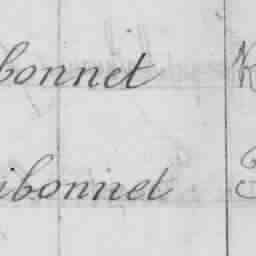 bonnet
ibonnet